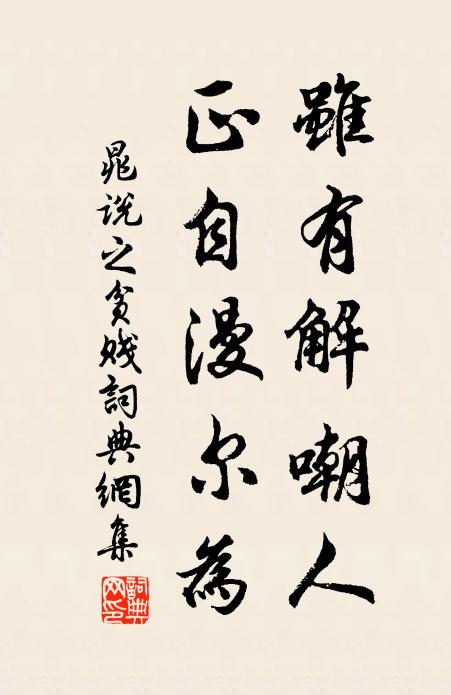 雖有解嘲人
正自漫尔為
晁說之貧賤詞典網集
詞典网印